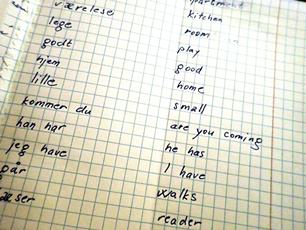 værelese
lege
godt
hjem
lille
kommer du
han har
jeg have
går
æser
partment
kitchen
room
play
good
home
small
are you coming
he has
I have
walks
reader